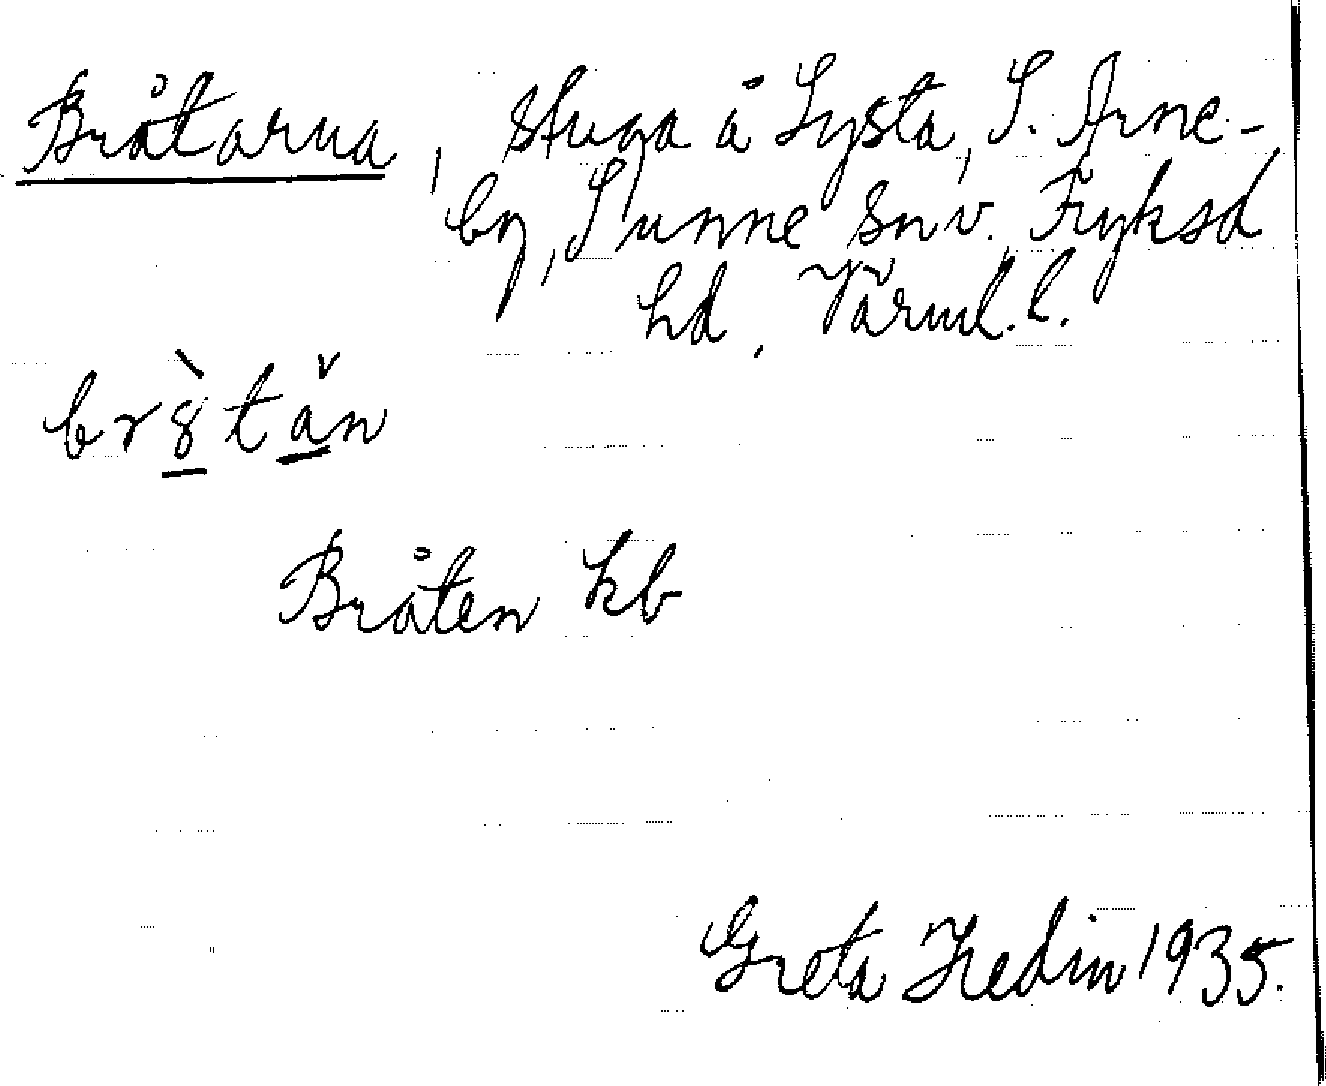 Bråtarna, stuga å Lysta, S. Arne-
by, Sunne sn v. Fryksd
hd, Värml. l.
br8̀tǎn
Bråten kb
Greta Hedin 1935.